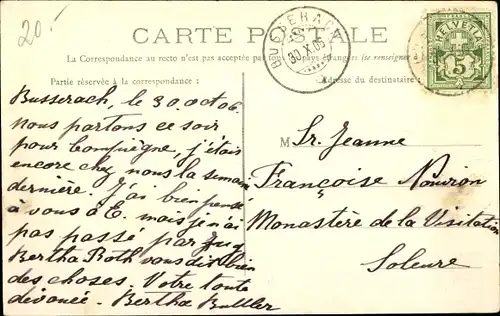 20.-
CARTE POSTALE
La Correspondance au recto n'est pas acceptée par tous les pays étrangers (se renseigner
Partie réservée à la correspondance :
Adresse du destinataire :
BÜSSERACH
30.X.06
HELVETIA
5
Busserach, le 30. oct 06.
Nous partons ce soir
pour Compiègne, j'étais
encore chez nous la semaine
dernière. J'ai bien pensé
à vous à E. mais je n'ai
pas passé par
Bertha Roth vous dit bien
des choses. Votre toute
dévouée. Bertha
M
Sr. Jeanne
Françoise Nouvion
Monastère de la Visitation
Soleure